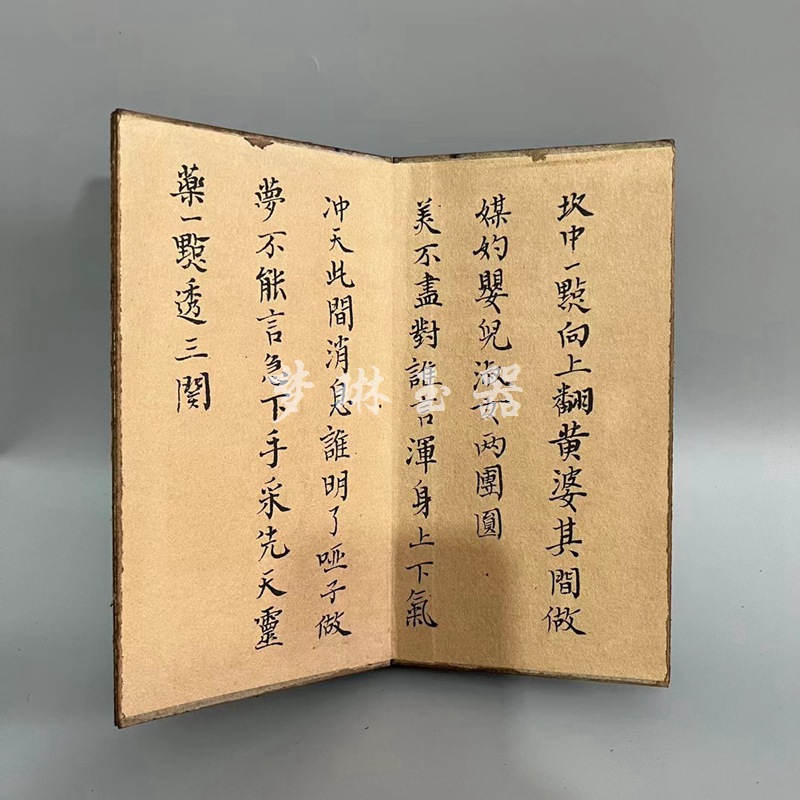 坎中一點向上翻黄婆其間做
媒妁嬰兒淑女两團圓
美不盡對誰言渾身上下氣
冲天此間消息誰明了啞子做
夢不能言急下手采先天靈
藥一點透三関
梦琳玉器